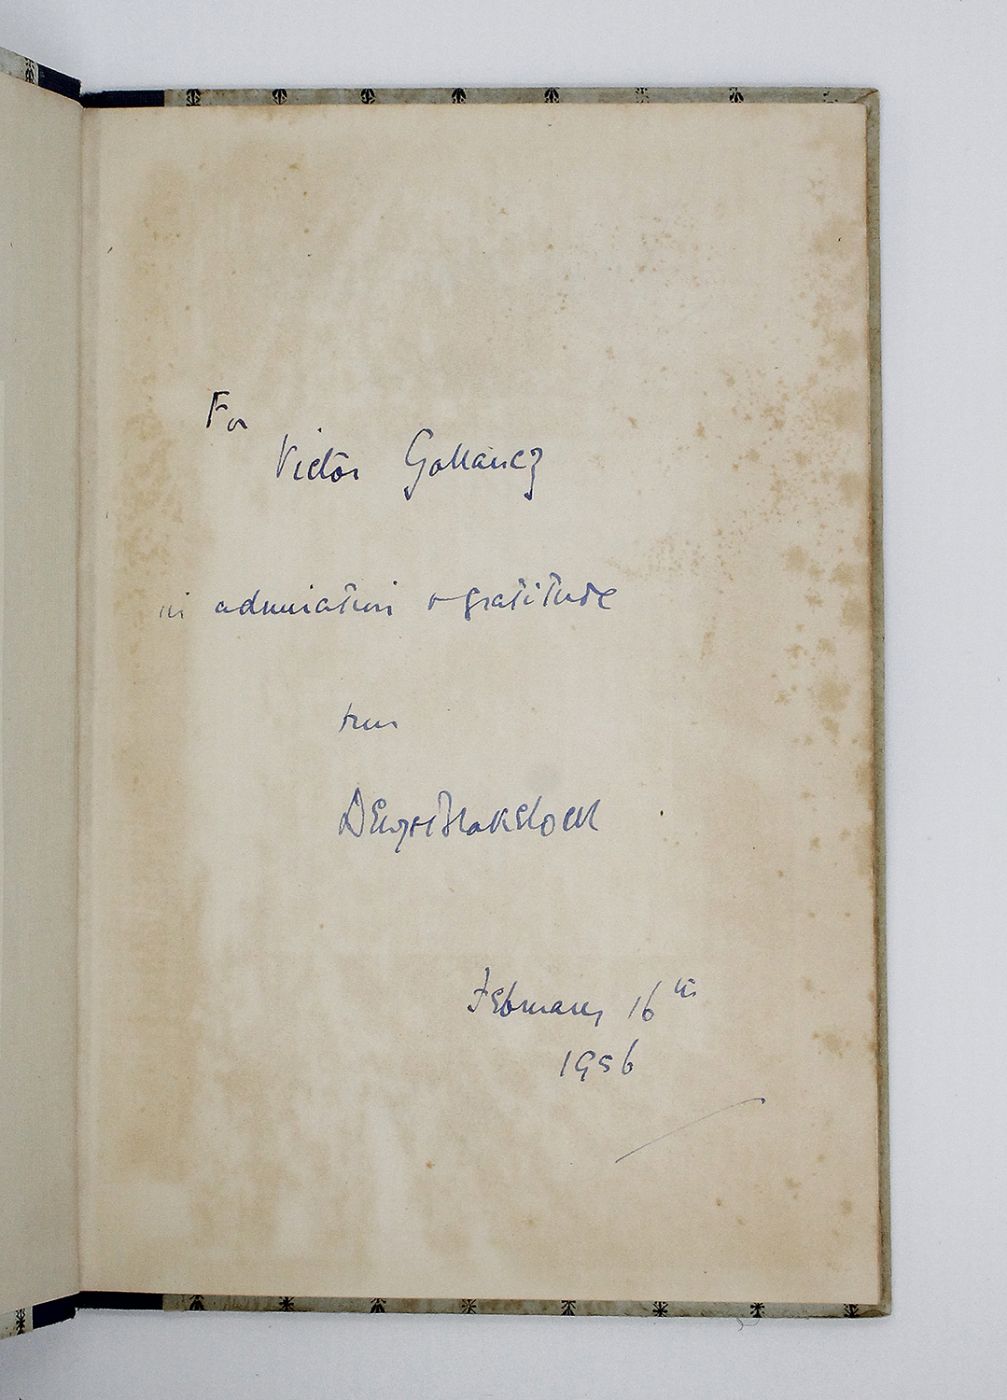 For
Victor Gollancz
in admiration & gratitude
from
Denys Blakelock
February 16th
1956